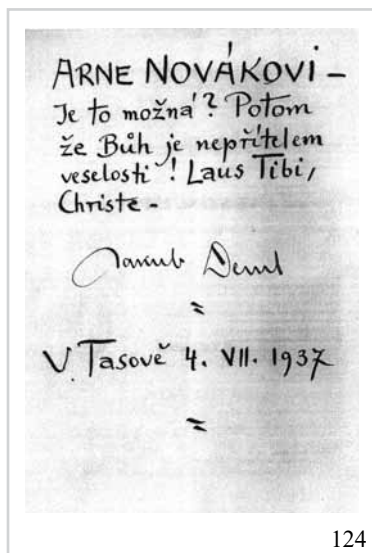 ARNE NOVÁKOVI –
Je to možná? Potom
že Bůh je nepřítelem
veselosti! Laus Tibi,
Christe –
Jakub Deml
V Tasově 4. VII. 1937
124